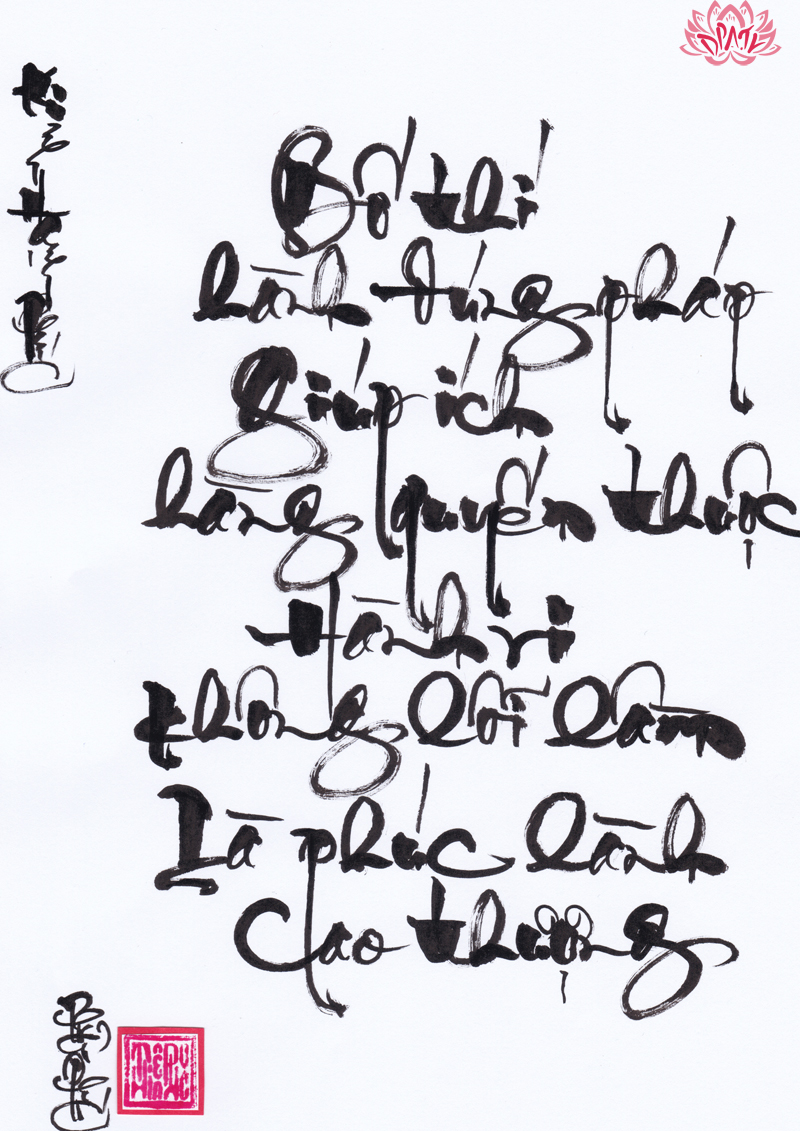 Bố thí
hành đúng pháp
giúp ích
hàng quyến thuộc
Hành vi
không lỗi lầm
Là phúc lành
cao thượng